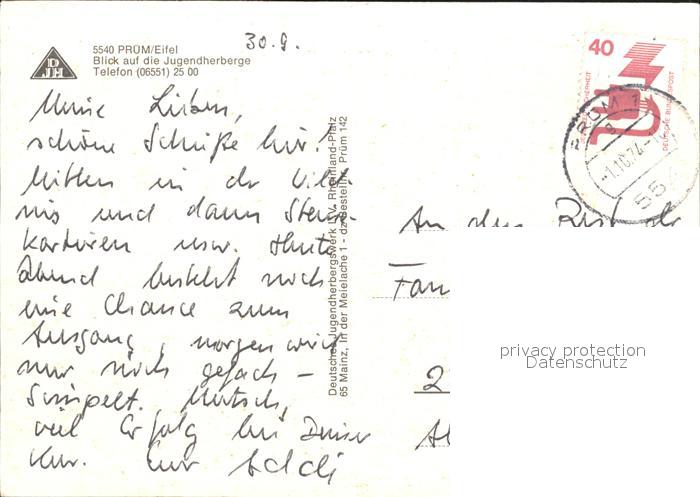 30.9.
5540 PRÜM/Eifel
Blick auf die Jugendherberge
Telefon (06551) 25 00
DJH
Meine Lieben,
schöne Schüße hier!
Mitten in der
und dann
kartieren usw. Heute
Abend besteht noch
eine Chance zum
Ausgang, morgen wird
nur noch
viel Erfolg bei Deiner
Kur. Euer
Deutsches Jugendherbergswerk LV. Rheinland-Pfalz
65 Mainz, In der Meielache 1 - dz Bestellnr. Prüm 142
40
DEUTSCHE BUNDESPOST
PRÜM 1
a
-1.10.74-
554
An den Rest der
Fam
2
privacy protection
Datenschutz